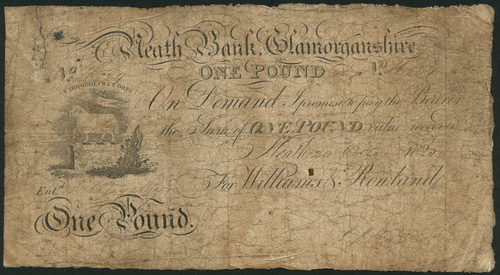 Neath Bank, Glamorganshire
ONE POUND
No
No
On Demand I promise to pay the Bearer
the Sum of ONE POUND value received
Neath
For Williams & Rowland
Entd
One Pound.